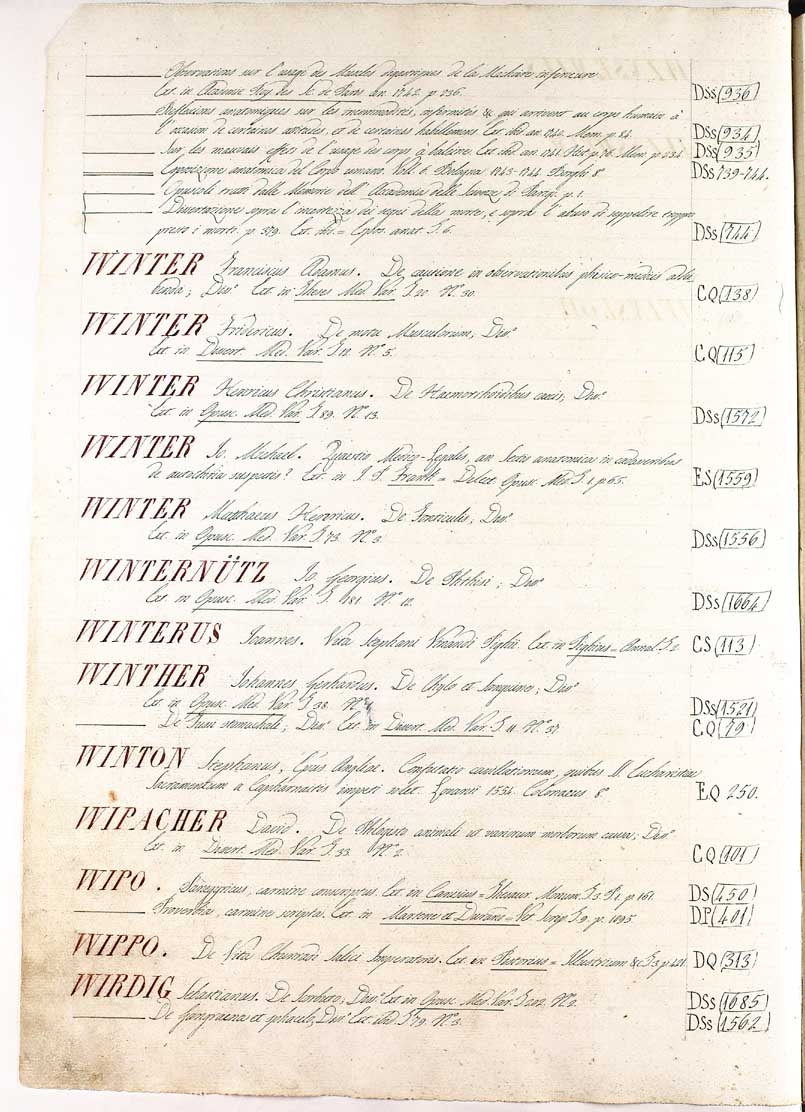 Observations sur l'usage des Muscles digastriques de la Machoire inferieure.
Ext. in Academie Roy. des Sc. de Paris an. 1742. p. 236. DSs (936)
Reflexions anatomiques sur les incommodités, infirmités &c. qui arrivent au corps humain à
l'occasion de certaines attitudes, et de certains habillemens Ext. ibid. an. 1740. Mem. p. 84. DSs (934)
Sur les mauvais effets de l'usage des corps à baleine. Ext. ibid. an. 1741. Hist. p. Mem. p. DSs (935)
Esposizione anatomica del Corpo umano. Voll. 6. Bologna 1743-1744 8° DSs 739-744.
Opuscoli tratti dalle Memorie dell' Accademia delle Scienze di Parigi. p. 1.
Dissertazione sopra l'incertezza dei segni della morte, e sopra l'abuso di seppelire troppo
presto i morti. p. 379. Ext. ibi = Espos. anat. T. 6. DSs (744)
WINTER Franciscus Erasmus. De cautione in observationibus physico-medicis adhi
benda; Diss. Ext. in Theses Med. Var. T. 20. N.° 30. CQ (138)
WINTER Fridericus. De motu Musculorum, Diss.
Ext. in Dissert. Med. Var. T. 12. N.° 5. CQ (115)
WINTER Henricus Christianus. De Haemorrhoidibus caecis, Diss.
Ext. in Opusc. Med. Var. T. 89. N.° 13. DSs (1572)
WINTER Jo. Michael. Quaestio Medico-Legalis, an Sectio anatomica in cadaveribus
de autochiria suspectis? Ext. in J. P. Frank = Delect. Opusc. Med. T. 1. p. 65. ES (1559)
WINTER Matthaeus Henricus. De Fonticulis, Diss.
Ext. in Opusc. Med. Var. T. 73. N.° 3. DSs (1556)
WINTERNÜTZ Jo. Georgius. De Phthisi; Diss.
Ext. in Opusc. Med. Var. T. 181. N.° 12. DSs (1664)
WINTERUS Joannes. Vita Stephani Vinandi Pighii. Ext. in Pighius = Annal. T. 2. CS (113)
WINTHER Johannes Gerhardus. De Chylo et Sanguine; Diss.
Ext. in Opusc. Med. Var. T. 38. N.° DSs (1521)
De Tussi stomachali; Diss. Ext. in Dissert. Med. Var. T. 11. N.° 37. CQ (79)
WINTON Stephanus, Epus Angliae. Confutatio cavillationum, quibus SS. Eucharistiae
Sacramentum a Capharnaitis impeti solet. Lovanii 1554. Colonaeus 8° EQ 250.
WIPACHER David. De Phlogisto animali ut variorum morborum causa; Diss.
Ext. in Dissert. Med. Var. T. 33. N.° 2. CQ (101)
WIPO. Panegyricus, carmine conscriptus. Ext. in Canisius = Thesaur. Monum. T. 3. P. 1. p. 161. DS (450)
Proverbia, carmine scripta. Ext. in Martene et Durand = Vet. Scrip. T. 9. p. 1095. DP (401)
WIPPO. De Vita Chunradi Salici Imperatoris. Ext. in Pistorius = Illustrium &c. T. 3. p. DQ (313)
WIRDIG Sebastianus. De Scorbuto; Diss. Ext. in Opusc. Med. Var. T. 202. N.° 2. DSs (1685)
De Gangraena et sphacelo, Diss. Ext. ibid. T. 79. N.° 3. DSs (1562)